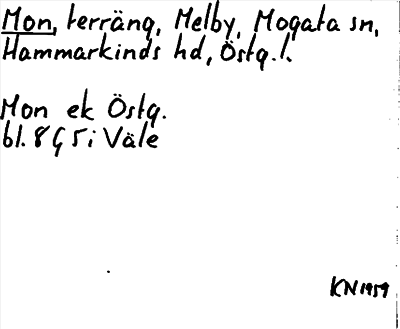 Mon, terräng, Melby, Mogata sn,
Hammarkinds hd, Östg.l.
Mon ek Östg.
bl. 8 G 5 i Väle
KN 1959